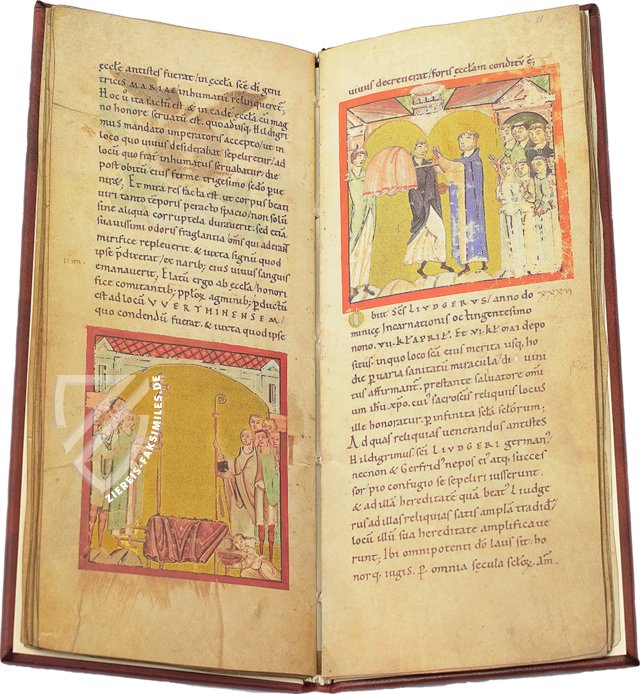 eccłę antistes fuerat/ in eccła scę di geni
tricis MARIAE inhumatũ relinquerẽt,
Hoc ů ita factũ est, & in eadẽ eccła cũ mag
no honore seruatũ est, quo adusq; Hildigri
mus mandato imperatoris accepto/ ut in
loco quo uiuus desiderabat sepeliretur/ ad
locũ quo frat inhumatus seruabatur, die
post obitũ eius ferme trigesimo sedo puę
nirę, Et mira res facta est ut corpus beati
uiri tanto tẽporis peracto spacio/ non solũ
sine aliqua corruptela durauerit, sed etiã
suauissimi odoris fraglantia om̃s qui aderant
mirifice repleuerit, & iuxta signũ quod
ipse p̃dixerat/ ex narib; eius uiuus sanguis
emanauerit, Elatũ ergo ab eccła/ honori
fice comitantib; pplox agminib; pductũ
est ad locũ VVERTHINENSEM/
quo condendũ fuerat, & iuxta quod ipse
ZIEREIS-FAKSIMILES.DE
31
uiuus decreuerat/ foris eccłam conditũ ẽ;
Obiit scs LIUDGERUS/ anno do
minicę Incarnationis oc tingentesimo
nono, VII. kł APRIł, Et VI. kł mai depo
situs, in quo loco scı̃ eius merita usq; ho
die p uaria sanitatũ miracula/ di uini
tus affirmant, prestante saluatore om̃i
um ihũ xp̃o, cui sacrosc̃is reliquiis locus
ille honoratur, p infinita scła scłorum;
Ad quas reliquias uenerandus antistes
Hildigrimus sc̃i LIUDGERI german'
necnon & Gerfrid' nepos ei' atq; succes
sor/ pio confugio se sepeliri iusserunt,
& ad illã hereditatẽ quã beat' Liudge
rus ad illas reliquias satis amplã tradid',
locũ illũ sua hereditate amplificaue
runt, Ibi omnipotenti do laus sit, ho
norq, iugis, p omnia secula secłox, am̃.